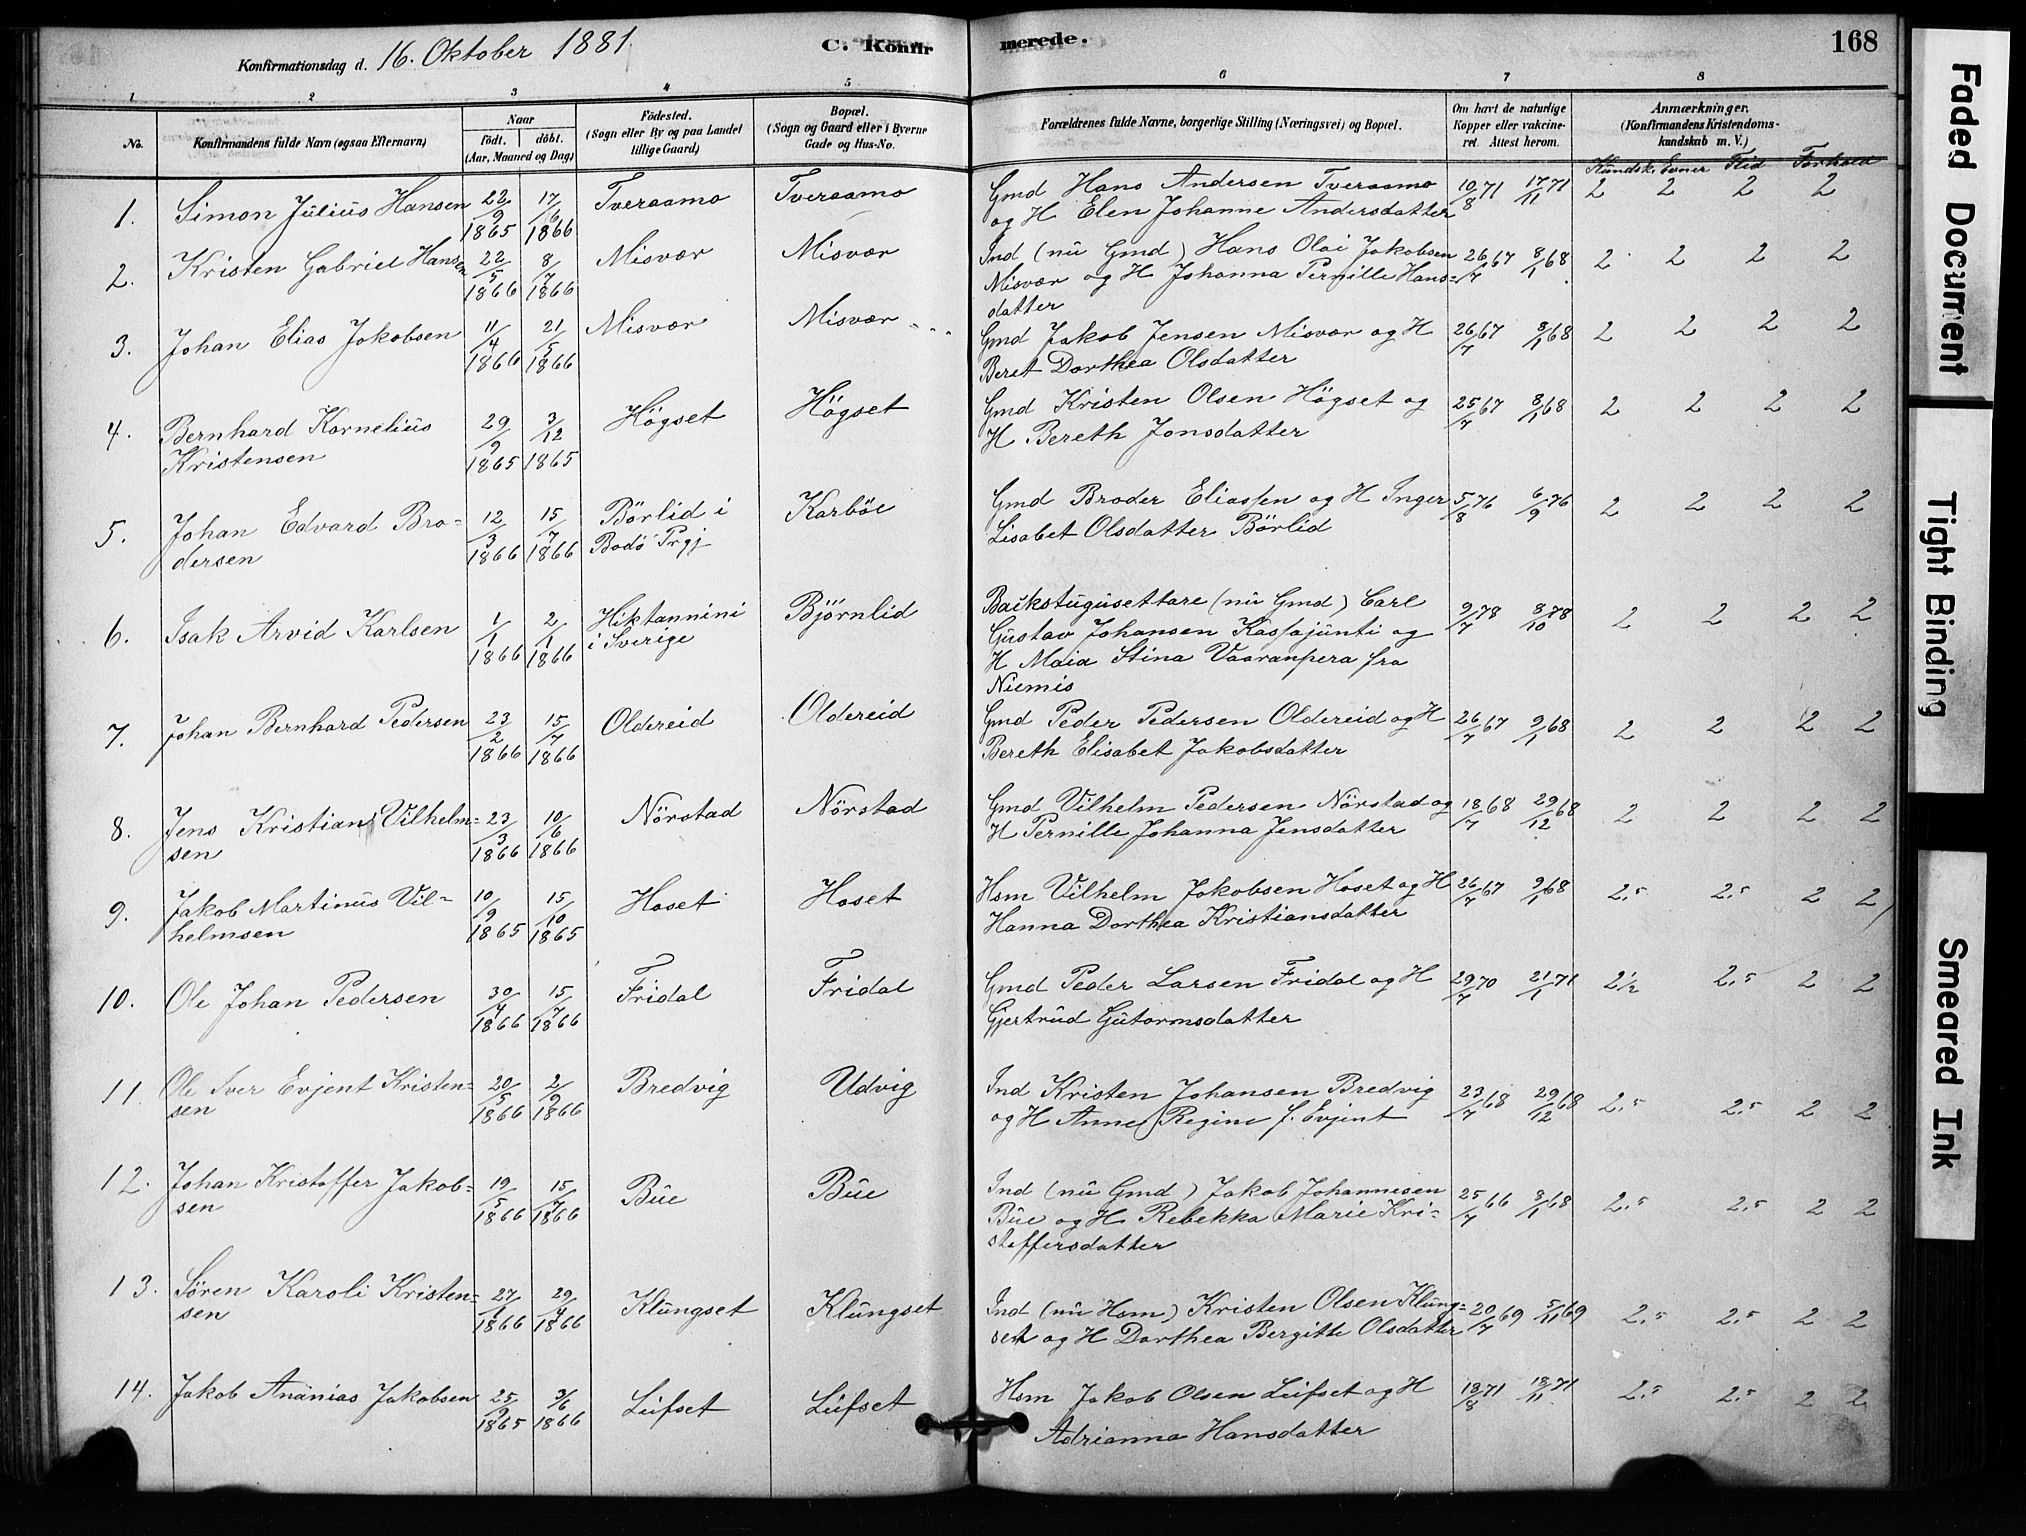 Konfirmationsdag d. 16. Oktober 1881.
C. Konfirmerede.
168
1 2 3 4 5 6 7 8
No.
Konfirmandens fulde Navn (ogsaa Efternavn)
Naar
födt. döbt.
(Aar, Maaned og Dag)
Födested.
(Sogn eller By og paa Landet
tillige Gaard)
Bopæl.
(Sogn og Gaard eller i Byerne
Gade og Hus-No.
Forældrenes fulde Navne, borgerlige Stilling (Næringsvei) og Bopæl.
Om havt de naturlige
Kopper eller vakcine-
ret. Attest herom.
Anmærkninger.
(Konfirmandens Kristendoms-
kundskab m. V.)
Kundsk. Evner Flid Forhold
1. Simon Julius Hansen 22/9 1865 17/6 1866 Tveraamo Tveraamo Gmd Hans Andersen Tveraamo 10/8 71 17/11 71 2 2 2 2
og H Elen Johanne Andersdatter
2. Kristen Gabriel Hansen 22/5 1866 8/7 1866 Misvær Misvær Ind (nu Gmd) Hans Olai Jakobsen 26/7 67 8/1 68 2 2 2 2
Misvær og H Johanna Pernille Hans-
datter
3. Johan Elias Jakobsen 11/4 1866 21/5 1866 Misvær Misvær Gmd Jakob Jensen Misvær og H 26/7 67 8/1 68 2 2 2 2
Beret Dorthea Olsdatter
4. Bernhard Kornelius 29/9 1865 3/12 1865 Högset Högset Gmd Kristen Olsen Högset og 25/7 67 8/1 68 2 2 2 2
Kristensen H Bereth Jonsdatter
5. Johan Edvard Bro- 12/3 1866 15/7 1866 Börlid i Karböe Gmd Broder Eliassen og H Inger 5/8 76 6/9 76 2 2 2 2
dersen Bodö Prgj Lisabet Olsdatter Börlid
6. Isak Arvid Karlsen 1/1 1866 2/1 1866 Hiktannini Björnlid Backstugusettare (nu Gmd) Carl 9/7 78 8/10 78 2 2 2 2
i Sverige Gustav Johansen Kassajunti og
H Maia Stina Vaaranpera fra
Niemis
7. Johan Bernhard Pedersen 23/2 1866 15/7 1866 Oldereid Oldereid Gmd Peder Pedersen Oldereid og H 26/7 67 9/1 68 2 2 2 2
Bereth Elisabet Jakobsdatter
8. Jens Kristian Vilhelm- 23/3 1866 10/6 1866 Nörstad Nörstad Gmd Vilhelm Pedersen Nörstad og 18/7 68 29/12 68 2 2 2 2
sen H Pernille Johanna Jensdatter
9. Jakob Martinus Vil- 10/9 1865 15/10 1865 Hoset Hoset Hsm Vilhelm Jakobsen Hoset og H 26/7 67 9/1 68 2.5 2.5 2 2
helmsen Hanna Dorthea Kristiansdatter
10. Ole Johan Pedersen 30/4 1866 15/7 1866 Fridal Fridal Gmd Peder Larsen Fridal og H 29/7 70 21/1 71 2½ 2.5 2 2
Gjertrud Gutormsdatter
11. Ole Iver Evjent Kristen- 20/5 1866 2/9 1866 Bredvig Udvig Ind Kristen Johansen Bredvig 23/7 68 29/12 68 2.5 2.5 2 2
sen og H Anne Regine f. Evjent
12. Johan Kristoffer Jakob- 19/5 1866 15/7 1866 Bue Bue Ind (nu Gmd) Jakob Johannesen 25/7 66 8/1 68 2.5 2.5 2 2
sen Bue og H Rebekka Marie Kri-
stoffersdatter
13. Sören Karoli Kristen- 27/1 1866 29/4 1866 Klungset Klungset Ind (nu Hsm) Kristen Olsen Klung- 20/7 69 5/11 69 2.5 2.5 2 2
sen set og H Dorthea Bergitte Olsdatter
14. Jakob Ananias Jakobsen 25/9 1865 3/6 1866 Leifset Leifset Hsm Jakob Olsen Leifset og H 18/8 71 18/11 71 2.5 2.5 2 2
Adrianna Hansdatter
Faded Document
Tight Binding
Smeared Ink